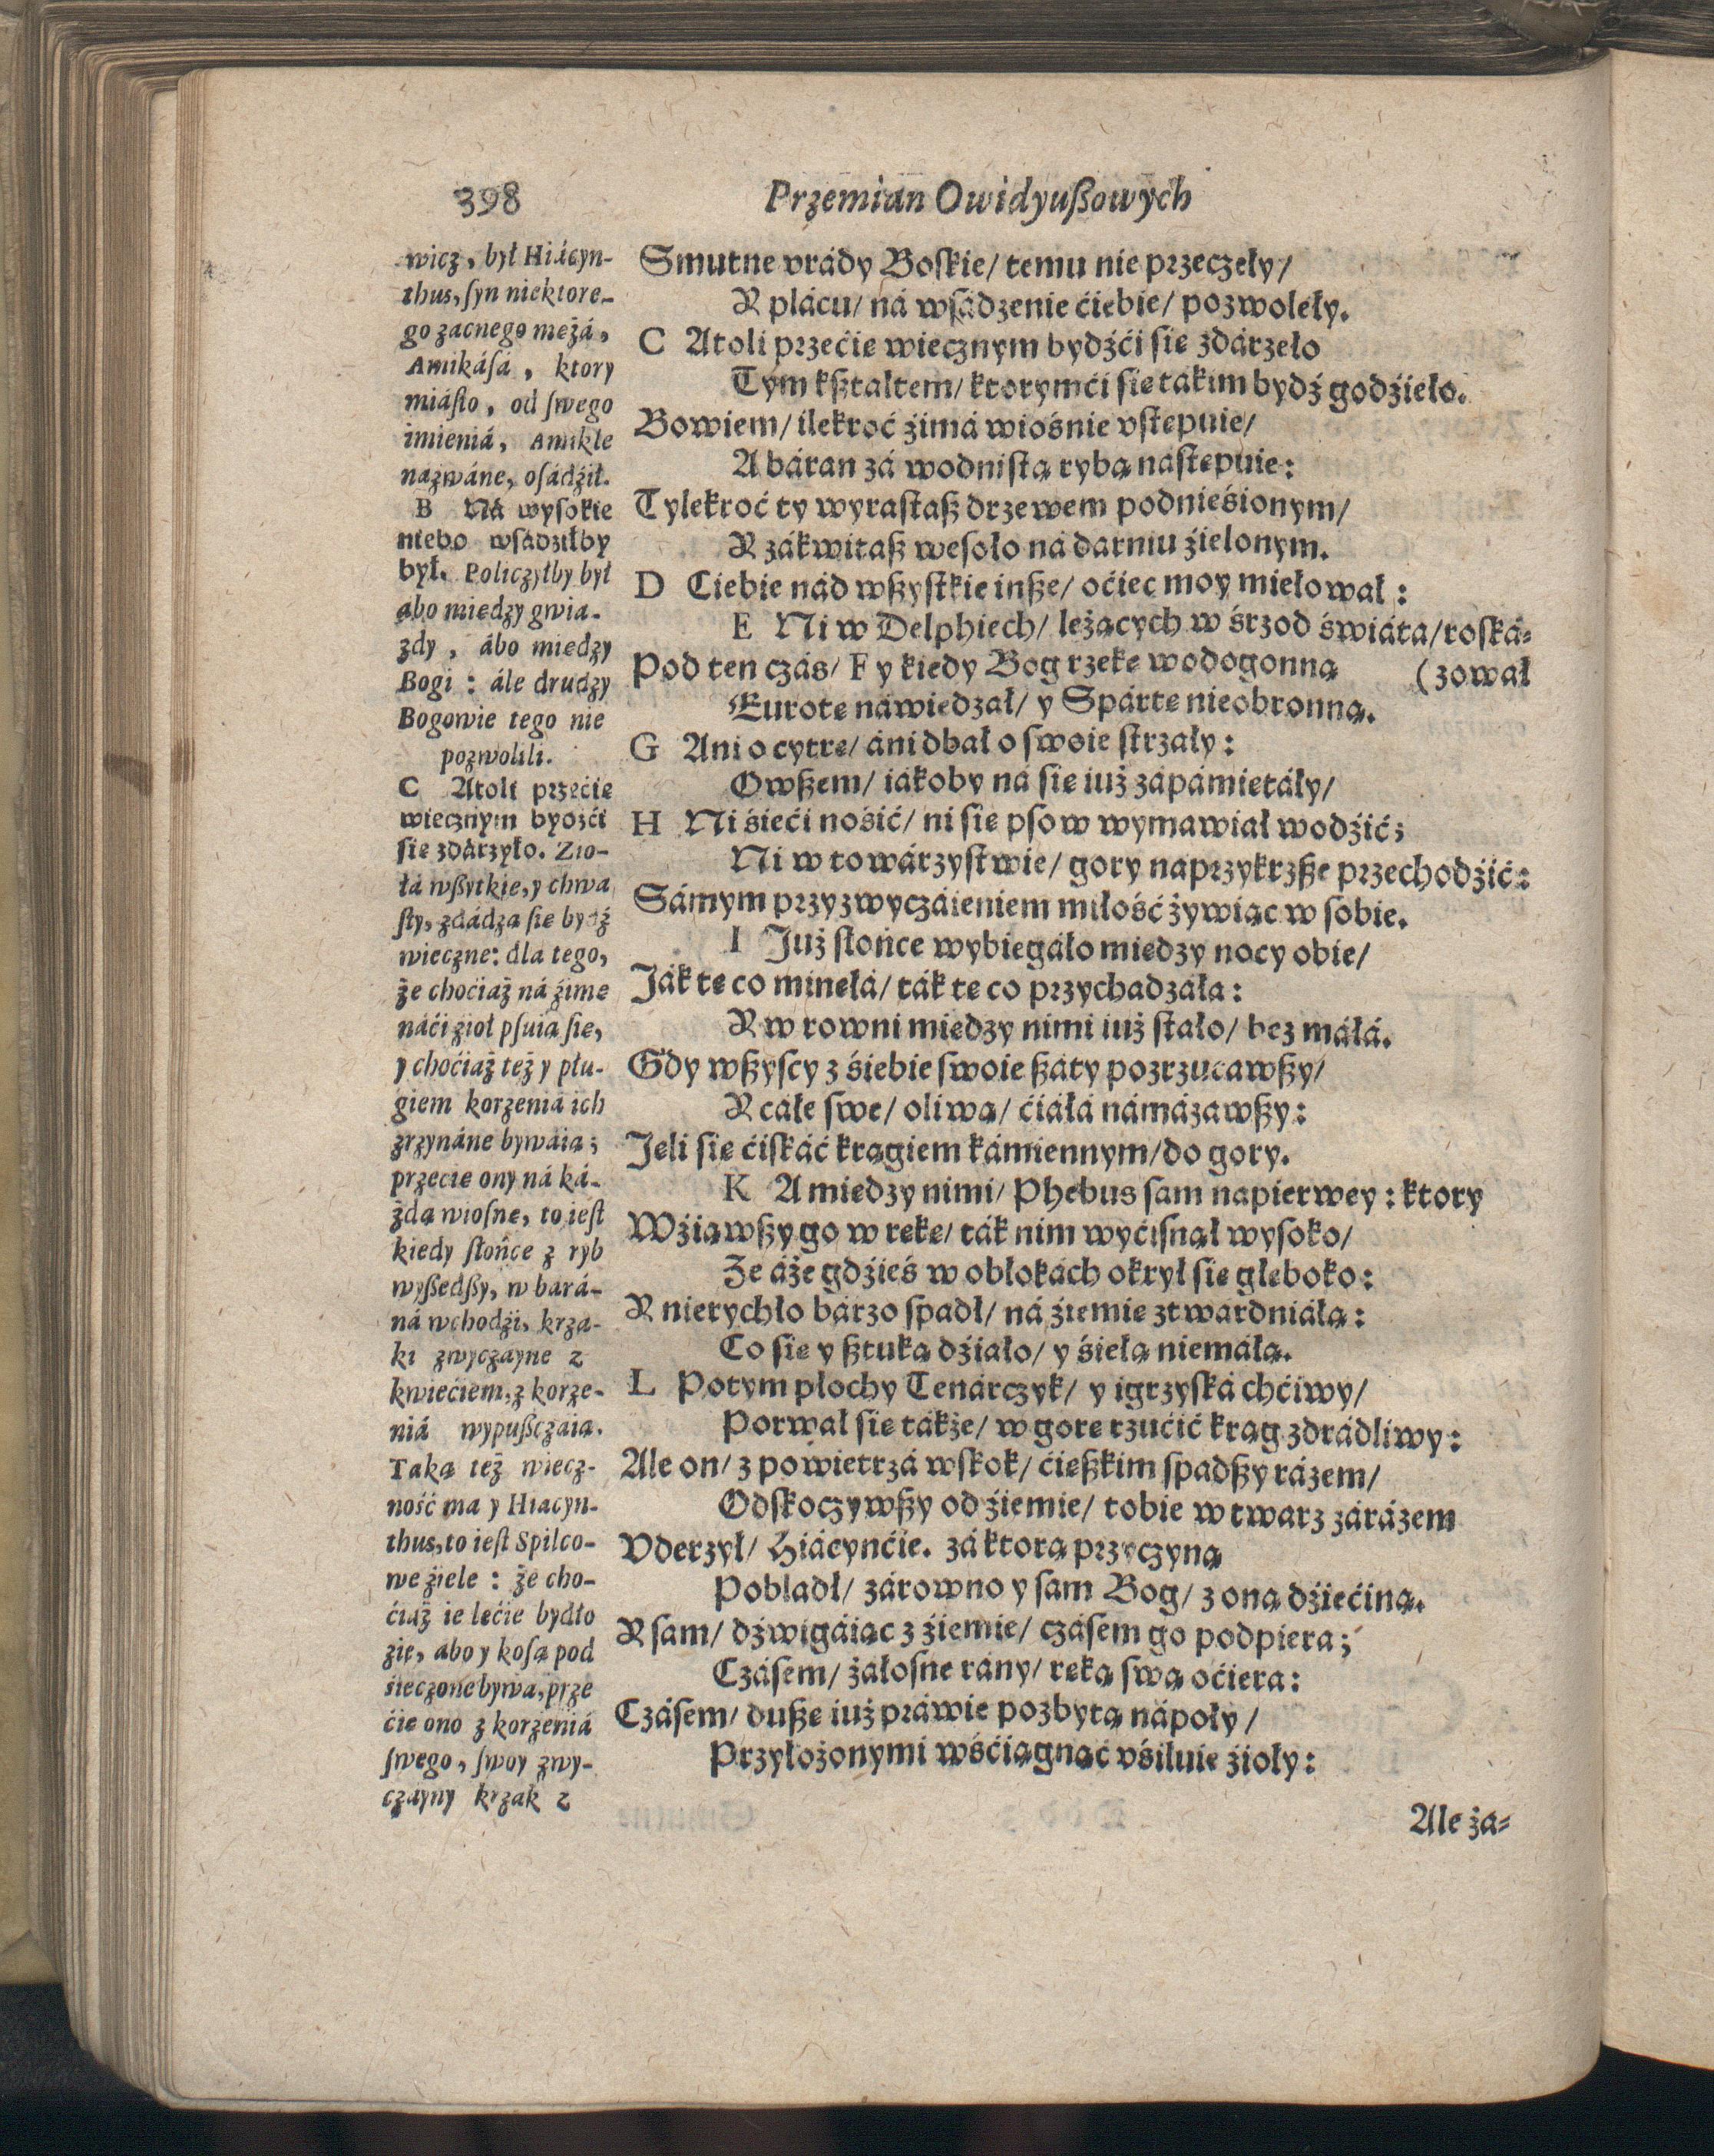 398
Przemian Owidyußowych
wicz, był Hiácyn-
thus, syn niektore-
go zacnego mężá,
Amikásá, ktory
miásto, od swego
imieniá, Amikle
nazwáne, osádźił.
B Ná wysokie
niebo wsádziłby
był. Policzyłby był
abo miedzy gwia-
zdy, ábo miedzy
Bogi: ále drudzy
Bogowie tego nie
pozwolili.
C Atoli przećie
wiecznym bydźći
sie zdárzyło. Zio-
łá wßytkie, y chwa
sty, zdádzą sie bydź
wieczne: dla tego,
że choćiaż ná źime
náći źioł psuią sie,
y choćiaż też y płu-
giem korzeniá ich
zrzynáne bywáią;
przecie ony ná ká-
żdą wiosne, to iest
kiedy słońce z ryb
wyßedßy, w bará-
ná wchodźi, krza-
ki zwyczayne z
kwiećiem, z korze-
niá wypußczáią.
Taką też wiecz-
ność ma y Hiacyn-
thus, to iest Spilco-
we źiele: że cho-
ćiaż ie lećie bydło
zie, abo y kosą pod
sieczone bywa, prze
ćie ono z korzeniá
swego, swoy zwy-
czayny krzak z
Smutne vrády Boskie/ temu nie przeczeły/
Y plácu/ ná wsádzenie ćiebie/ pozwoleły.
C Atoli przećie wiecznym bydźći sie zdárzeło
Tym kßtałtem/ ktorymći sie tákim bydź godźieło.
Bowiem/ ilekroć źimá wiośnie vstepuie/
A báran zá wodnistą rybą nástepuie:
Tylekroć ty wyrastaß drzewem podnieśionym/
Y zákwitaß wesoło ná darniu źielonym.
D Ciebie nád wßystkie inße/ oćiec moy miełował:
E Ni w Delphiech/ leżących w śrzod świáta/ roská-
Pod ten czás/ F y kiedy Bog rzeke wodogonną (zował
Eurote náwiedzał/ y Spárte nieobronną.
G Ani o cytre/ áni dbał o swoie strzały:
Owßem/ iákoby ná sie iuż zápámietáły/
H Ni śieći nośić/ ni sie psow wymawiał wodźić;
Ni w towárzystwie/ gory naprzykrzße przechodźić:
Sámym przyzwyczáieniem miłość żywiąc w sobie.
I Już słońce wybiegáło miedzy nocy obie/
Ják te co minełá/ ták te co przychadzáłá:
Y w rowni miedzy nimi iuż stało/ bez máłá.
Gdy wßyscy z śiebie swoie ßáty pozrzucawßy/
Y cáłe swe/ oliwą/ ćiáłá námázawßy:
Jeli sie ćiskáć krągiem kámiennym/ do gory.
K A miedzy nimi/ Phebus sam napierwey: ktory
Wźiąwßy go w reke/ ták nim wyćisnął wysoko/
Że áże gdźieś w obłokách okrył sie głeboko:
Y nierychło bárzo spadł/ ná źiemie ztwárdniáłą:
Co sie y ßtuką dźiało/ y śiełą niemáłą.
L Potym płochy Tenárczyk/ y igrzyská chćiwy/
Porwał sie tákże/ w gore rzućić krąg zdrádliwy:
Ale on/ z powietrzá wskok/ ćießkim spadßy rázem/
Odskoczywßy od źiemie/ tobie w twarz zárázem
Vderzył/ Hiácynćie. zá ktorą przyczyną
Pobladł/ zárowno y sam Bog/ z oną dźiećiną.
Y sam/ dźwigáiąc z źiemie/ czásem go podpiera;
Czásem/ żáłosne rány/ reką swą oćiera:
Czásem/ duße iuż práwie pozbytą nápoły/
Przyłożonymi wśćiągnąć vśiłuie źioły:
Ale żá-